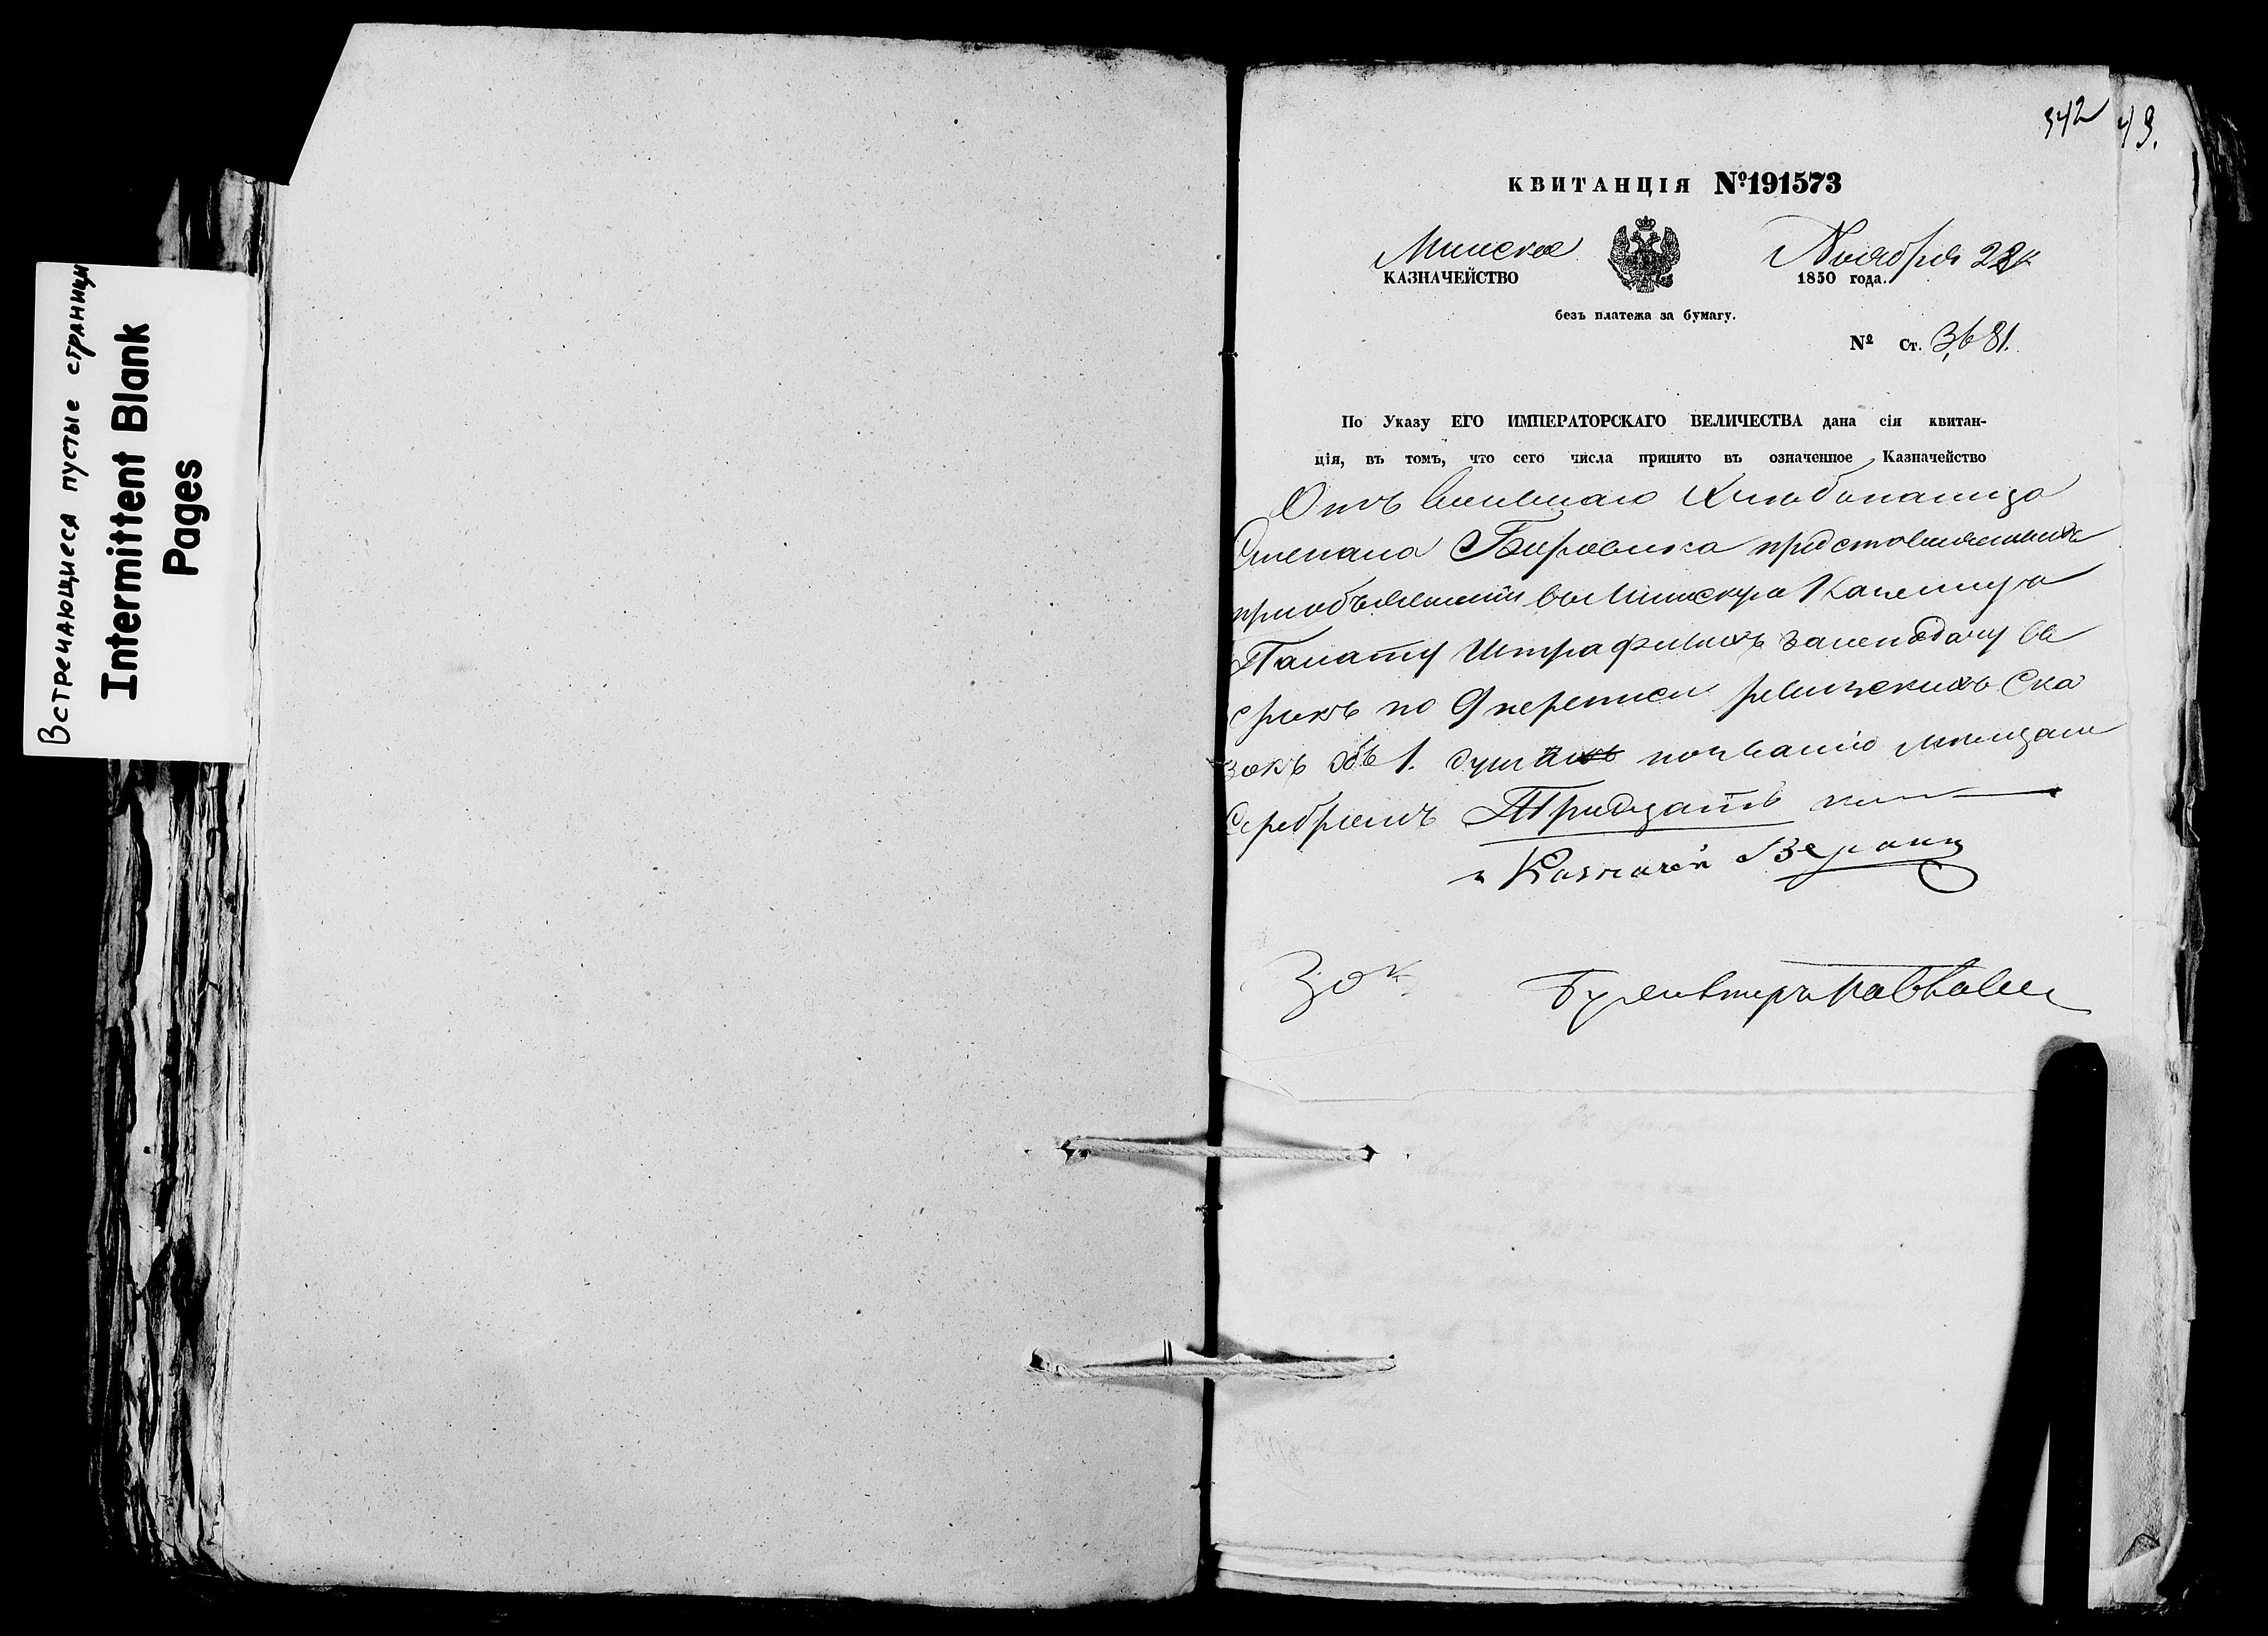 Встречающиеся пустые страницы
Intermittent Blank
Pages
342 49.
КВИТАНЦІЯ №191573
Минское
КАЗНАЧЕЙСТВО
Ноября 22
1850 года.
безъ платежа за бумагу.
№ Ст. 3681.
По Указу ЕГО ИМПЕРАТОРСКАГО ВЕЛИЧЕСТВА дана сія квитан-
ція, въ томъ, что сего числа принято въ означенное Казначейство
Отъ вольнаго Хлѣбопашца
Степана
въ Минскую Казенную
Палату Штрафныхъ за неподачу въ
срокъ по 9 переписи ревизскихъ Ска
зокъ объ 1. душѣ по званію мѣщанъ
Серебромъ Тридцать коп
Казначей
30 к.
Бухгалтеръ